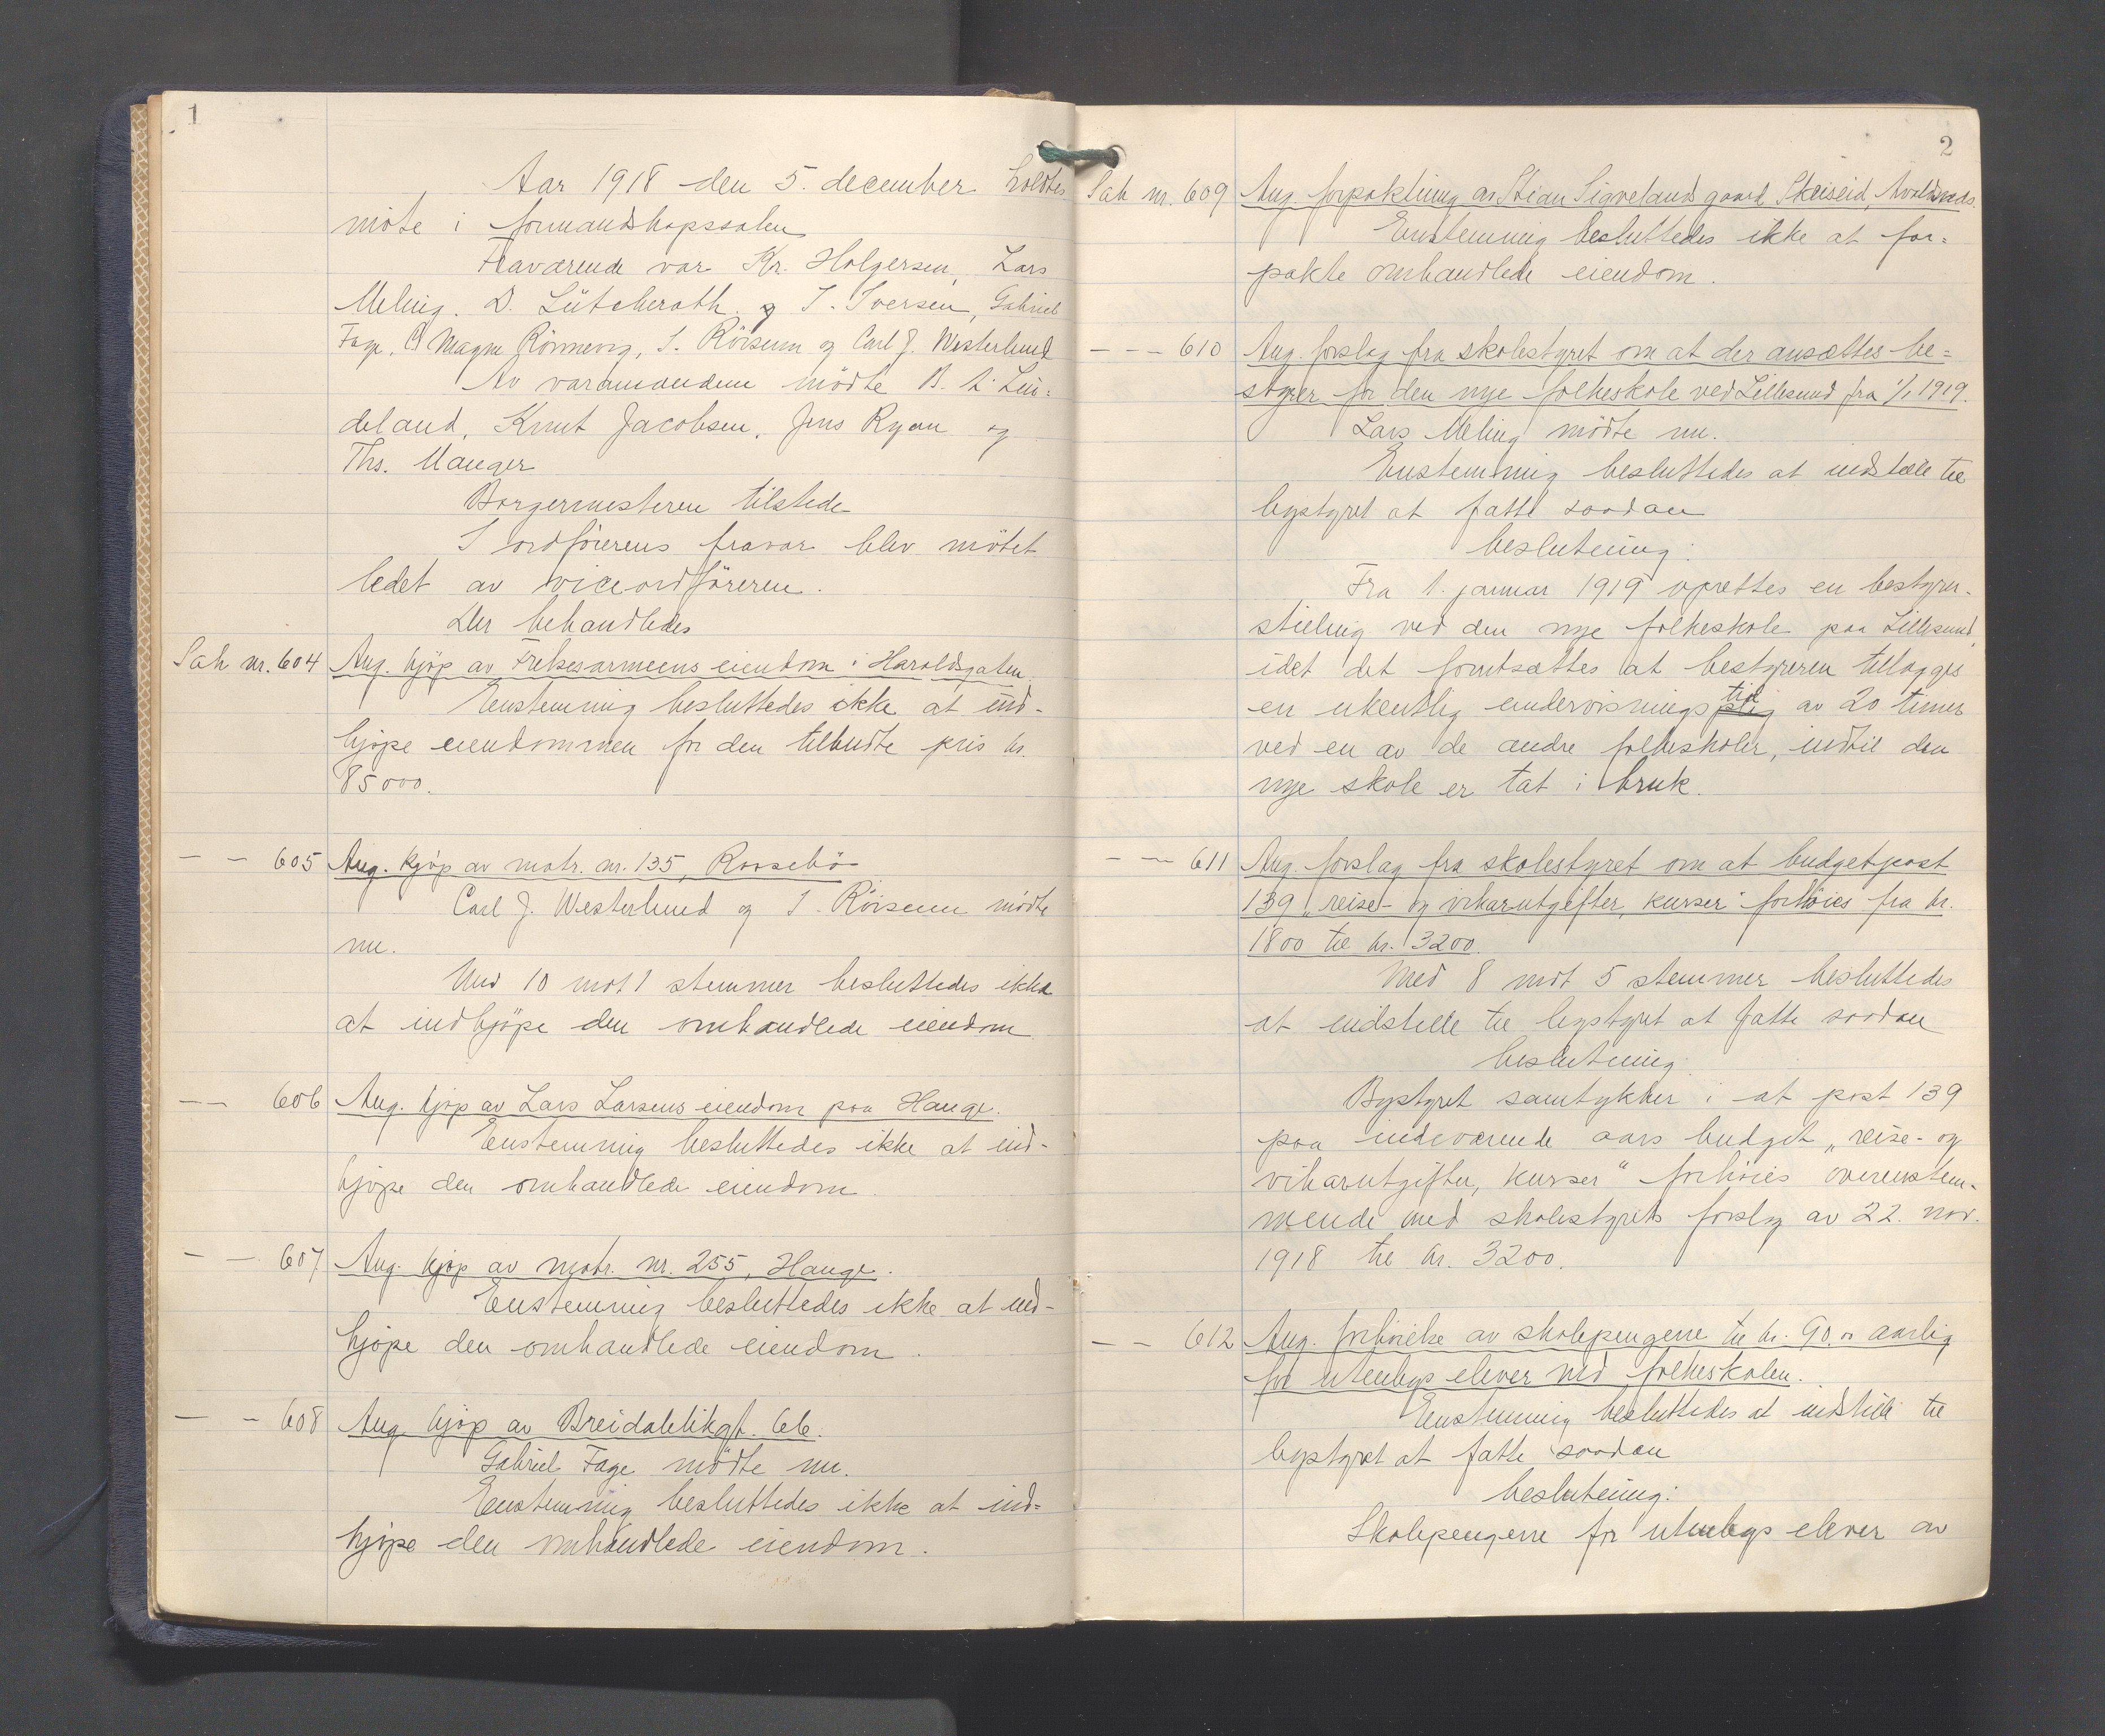 1
Aar 1918 den 5. december holdtes
möte i formandskapssalen
Fraværende var Kr. Holgersen, Lars
Meling. D. Lütcherath. og I. Iversen, Gabriel
Fage, Magne Rönnevig, S. Röisum og Carl J. Westerlund
Av varamændene mödte B. A. Lin=
deland, Knut Jacobsen, Jens Ryan og
Ths. Mauger
Borgermesteren tilstede
I ordförerens fravær blev mötet
ledet av viceordföreren.
Der behandledes
Sak nr. 604 Ang. kjöp av Frelsesarmeens eiendom i Haraldsgaten.
Enstemmig besluttedes ikke at ind-
kjöpe eiendommen for den tilbudte pris kr.
85000.
— — 605 Ang. kjöp av matr. nr. 135, Rossebö
Carl J. Westerlund og S. Röisum mödte
nu.
Med 10 mot 1 stemmer besluttedes ikke
at indkjöpe den omhandlede eiendom
— — 606 Ang. kjöp av Lars Larsens eiendom paa Hauge.
Enstemmig besluttedes ikke at ind-
kjöpe den omhandlede eiendom.
— — 607 Ang. kjöp av matr. nr. 255, Hauge.
Enstemmig besluttedes ikke at ind-
kjöpe den omhandlede eiendom.
— — 608 Ang. kjöp av Breidablikgt. 66.
Gabriel Fage mödte nu.
Enstemmig besluttedes ikke at ind=
kjöpe den omhandlede eiendom.
2
Sak nr. 609 Ang. forpaktning av Stian Siqvelands gaard Skeiseid, Avaldsnes.
Enstemmig besluttedes ikke at for=
pakte omhandlede eiendom.
— — — 610 Ang. forslag fra skolestyret om at der ansættes be=
styrer for den nye folkeskole ved Lillesund fra 1/1 1919.
Lars Meling mödte nu.
Enstemmig besluttedes at indstille til
bystyret at fatte saadan
beslutning:
Fra 1. januar 1919 oprettes en bestyrer-
stilling ved den nye folkeskole paa Lillesund,
idet det forutsættes at bestyreren tillægges
en ukentlig undervisningstid av 20 timer
ved en av de andre folkeskoler, indtil den
nye skole er tat i bruk.
— — 611 Ang. forslag fra skolestyret om at budgetpost
139 „reise- og vikarutgifter, kurser" forhöies fra kr.
1800 til kr. 3200.
Med 8 mot 5 stemmer besluttedes
at indstille til bystyret at fatte saadan
beslutning.
Bystyret samtykker i at post 139
paa indeværende aars budget „reise- og
vikarutgifter, kurser" forhöies overenstem-
mende med skolestyrets forslag av 22. nov.
1918 til kr. 3200.
— — 612 Ang. forhöielse av skolepengene til kr. 90.00 aarlig
for utenbys elever ved folkeskolen.
Enstemmig besluttedes at indstille til
bystyret at fatte saadan
beslutning:
Skolepengene for utenbys elever av